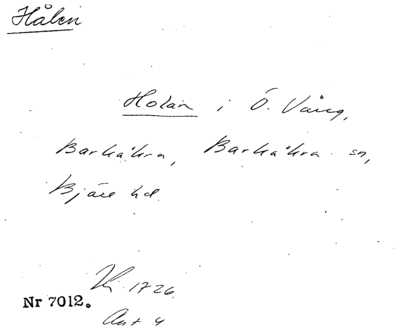 Hålen
Holan i Ö. Vång,
Barkåkra, Barkåkra sn,
Bjäre hd.
1726.
Nr 7012.
Akt 4